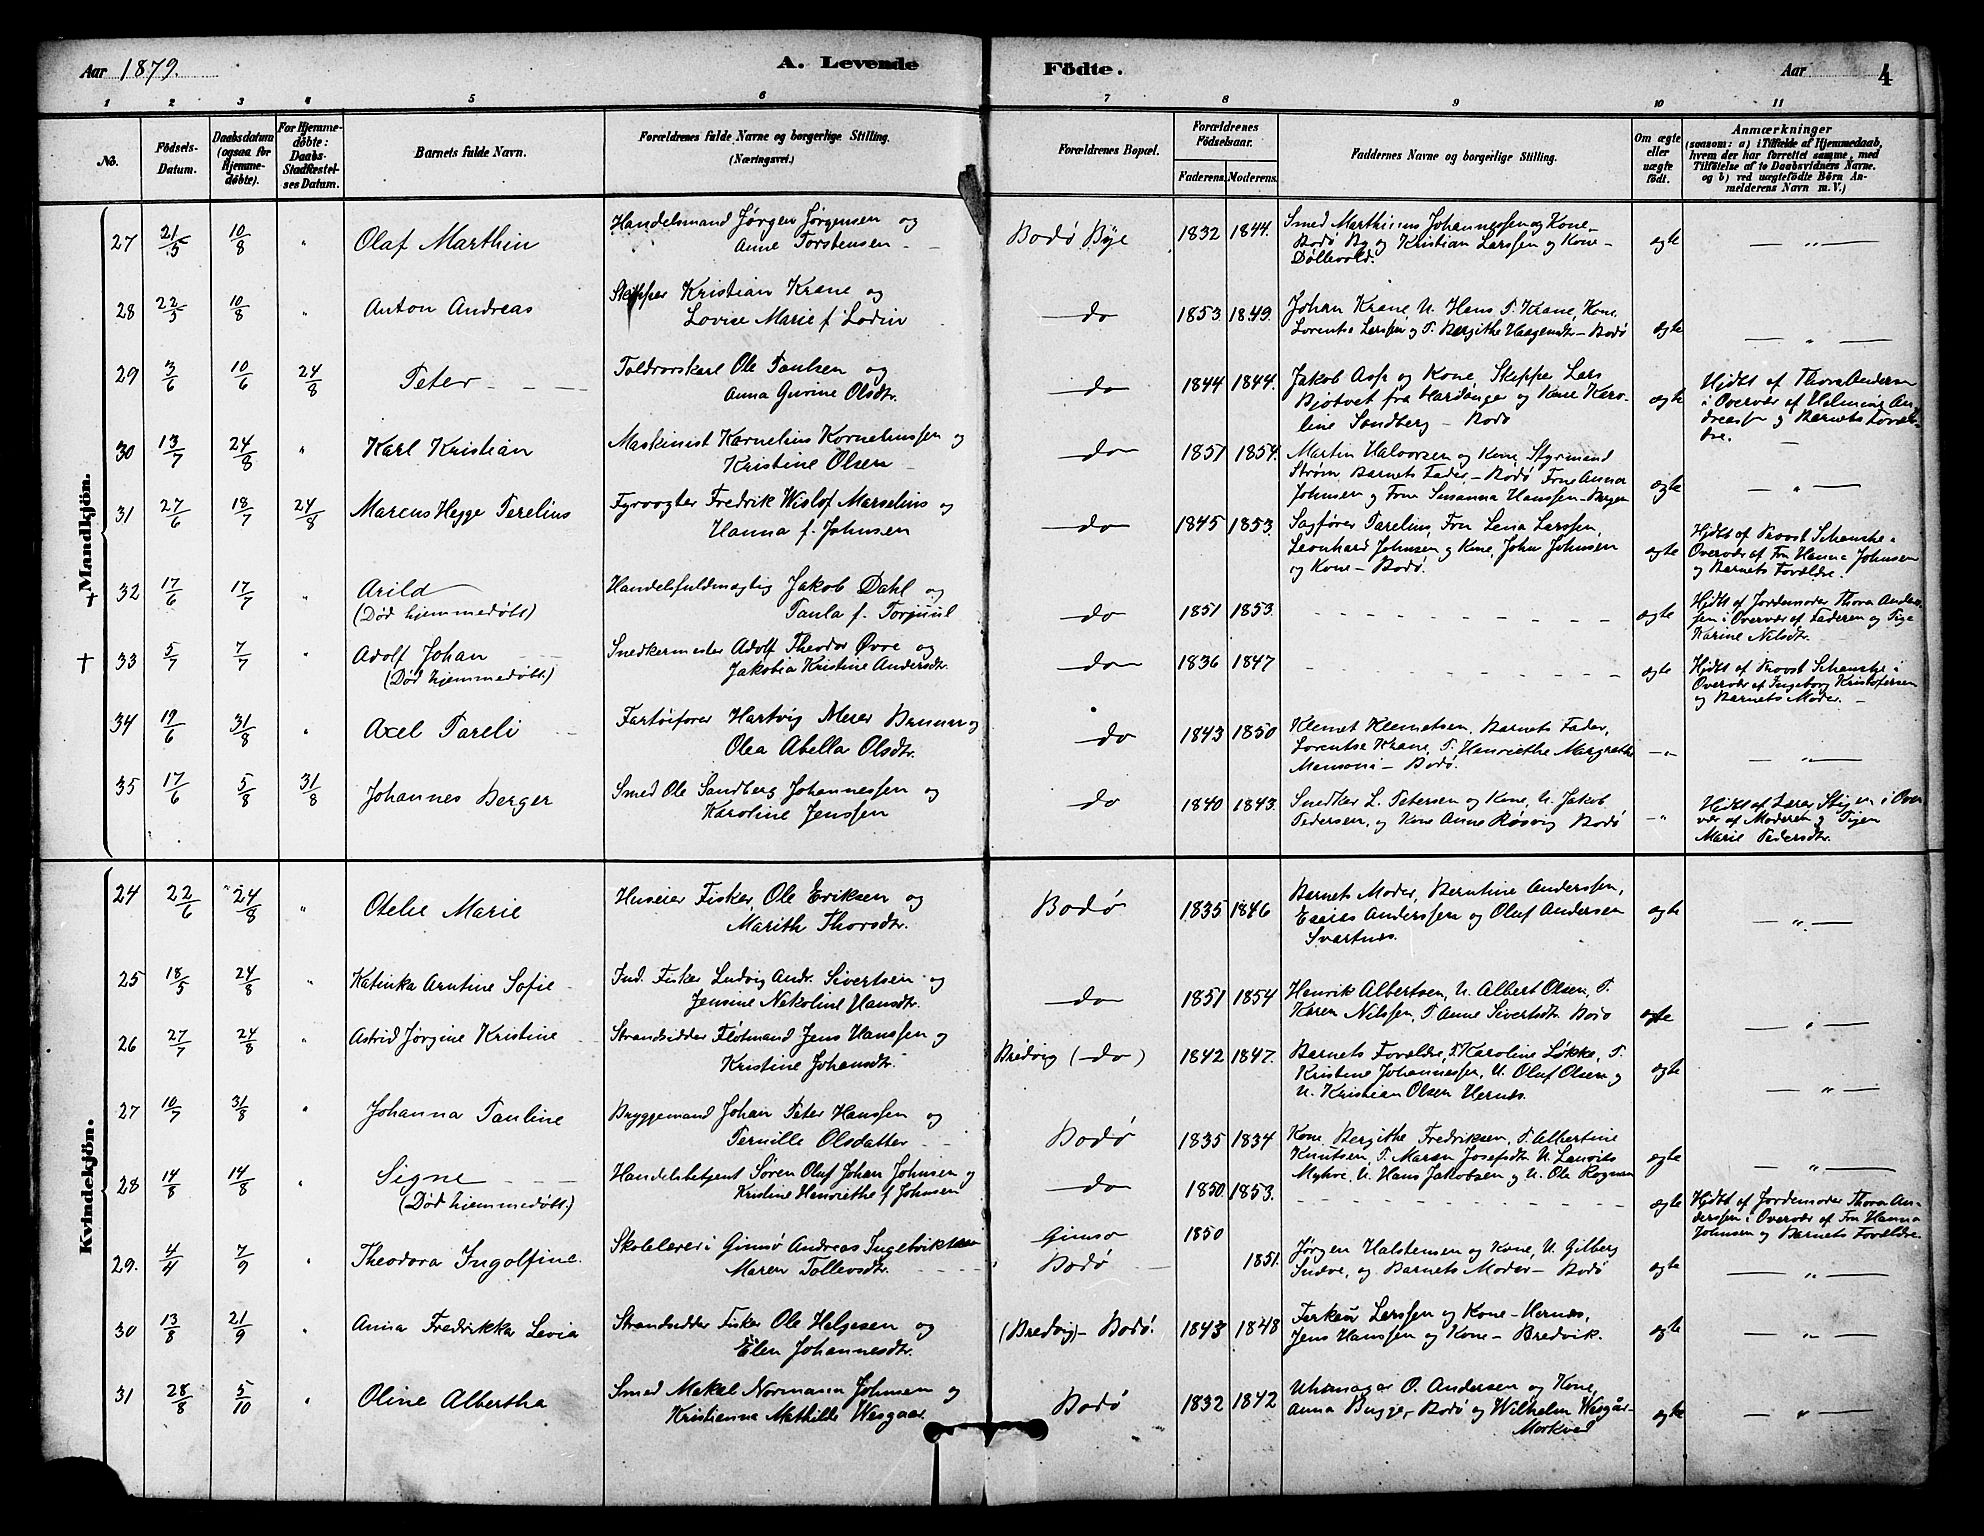 Aar 1879.
A. Levende Födte.
Aar
4
1 2 3 4 5 6 7 8 9 10 11
No.
Födsels-Datum.
Daabsdatum (ogsaa for Hjemme-döbte).
For Hjemme-döbte: Daabs-Stadfæstel-ses Datum.
Barnets fulde Navn.
Forældrenes fulde Navne og borgerlige Stilling. (Næringsvei.)
Forældrenes Bopæl.
Forældrenes Födselsaar.
Faderens. Moderens.
Faddernes Navne og borgerlige Stilling.
Om ægte eller uægte født.
Anmærkninger
(saasom: a) i Tilfælde af Hjemmedaab, hvem der har forrettet samme, med Tilföielse af to Daabsvidners Navne. og b) ved uægtefödte Börn An-melderens Navn m. V.)
Mandkjön.
27 21/5 10/8 " Olaf Marthin
Handelsmand Jørgen Jørgensen og
Anne Torstensen
Bodö Bye 1832 1844.
Smed Marthinus Johannessen og Kone,
Bodö By og Kristian Larssen og Kone
ægte — " —
28 22/3 10/8 " Anton Andreas
Skipper Kristian Krane og
Lovise Marie f. Lodin
do 1853 1849.
Johan Krane, U. Hans P. Krane, Kone
Lorentse Larssen og P. Bergithe Haagensdtr – Bodö
ægte — " —
29 3/6 10/6 24/8 Peter
Toldrorskarl Ole Paulsen og
Anna Olsdtr.
do 1844 1844.
Jakob Asp og Kone, Skipper Lars
fra Hardanger og Kone Karo-
line Sandberg – Bodö
ægte
Hjdbt af Thora Andersen
i Overvær af Helmine An-
dreassen og Barnets Foræl-
dre.
30 13/7 24/8 " Karl Kristian
Maskinist Kornelius Korneliussen og
Kristine Olsen
do 1851 1854.
Martin Halvorsen og Kone, Styrmand
Strøm Barnets Fader – Bodö Frue Anna
Johnsen og Frue Susanna Hanssen – Bergen
ægte — " —
31 27/6 18/7 24/8 Marcus Hegge Perelius
Fyrvogter Fredrik Wisløf Marselius og
Hanna f. Johnsen
do 1845 1853.
Sagfører Parelius, Fru Lena Larssen,
Leonhard Johnsen og Kone, John Johnsen
og Kone – Bodö.
ægte
Hjdbt af Provst Schanche i
Overvær af Fru Hanna Johnsen
og Barnets Forældre.
† 32 17/6 17/7 " Arild
(Død hjemmedøbt)
Handelsfuldmægtig Jakob Dahl og
Paula f. Torjuul
do 1851 1853.
ægte
Hjdbt af Jordemoder Thora Anders-
sen i Overvær af Faderen og Pige
Karine Nilsdtr.
† 33 5/7 7/7 " Adolf Johan
(Død hjemmedøbt.)
Snedkermester Adolf Theodor Øvre og
Jakobia Kristine Andersdtr.
do 1836 1847
ægte
Hjdbt af Provst Schanche i
Overvær af Ingeborg Kristofersen
og Barnets Moder.
34 19/6 31/8 " Axel Pareli
Fartøifører Hartvig Meier og
Olea Abella Olsdtr.
do 1843 1850
Klemet Klemetsen, Barnets Fader,
Lorentse Krane, P. Henriethe Margrethe
– Bodö.
— " — — " —
35 17/6 5/8 31/8 Johannes Berger
Smed Ole Sandberg Johannessen og
Karoline Jenssen
do 1840 1843.
Snedker L. Petersen og Kone, U. Jakob
Pedersen, og Kone Anne Røsvig Bodö
— " —
Hjdbt af Lærer i Over-
vær af Moderen og Pigen
Marie Pedersdtr.
Kvindekjön.
24 22/6 24/8 " Otelie Marie
Huseier Fisker Ole Eriksen og
Marith Thorsdtr.
Bodö 1835 1846
Barnets Moder, Berntine Anderssen,
Esaias Anderssen og Oluf Andersen
Svartnæs.
ægte — " —
25 18/5 24/8 " Katinka Arntine Sofie
Ind. Fisker Ludvig Andr. Sivertsen og
Jensine Nekoline Hansdtr.
do 1851 1854
Henrik Albertsen, U. Albert Olsen, P.
Karen Nilssen, P. Anne Sivertsdtr Bodö
ægte — " —
26 27/7 24/8 " Astrid Jørgine Kristine
Strandsidder Fløtmand Jens Hanssen og
Kristine Johansdtr.
Bredvig (do) 1842 1847.
Barnets Forældre, P. Karoline Løkke, P.
Kristine Johannessen, U. Oluf Olsen og
U. Kristian Olsen Hernæs.
ægte — " —
27 10/7 31/8 " Johanna Pauline
Bryggemand Johan Peter Hanssen og
Pernille Olsdatter
Bodö 1835 1834
Kone Bergithe Fredriksen, P. Albertine
Knutsen, P. Maren Josefsdtr U. Lauvits
Myhre, U. Hans Jakobsen og U. Ole Rognan
ægte — " —
28 14/8 14/8 " Signe
(Død hjemmedøbt.)
Handelsbetjent Søren Oluf Johan Johnsen og
Kristine Henriethe f. Johnsen
do 1850 1853.
ægte
Hjdbt af Jordemoder Thora An-
derssen i Overvær af Fru Hanna
Johnsen og Barnets Forældre.
29. 4/4 7/9 " Theodora Ingolfine
Skolelærer i Gimsö Andreas Ingebriktsen
Maren Tollevsdtr.
Gimsö 1850
Bodö 1851.
Jørgen Halstensen og Kone, U. Gilberg
og Barnets Moder – Bodö
ægte — " —
30 13/8 21/9 " Anna Fredrikka Levia
Strandsidder Fisker Ole Helgesen og
Elen Johannesdtr.
(Bredvig) – Bodö. 1843 1848
Larssen og Kone – Hernæs,
Jens Hanssen og Kone – Bredvik.
ægte — " —
31 28/8 5/10 " Oline Albertha
Smed Mekal Normann Johnsen og
Kristianna Mathilde Wesgaar
Bodö 1832 1842
Uhrmager O. Andersen og Kone,
Anna Bugge, Bodö og Wilhelm Wesgår –
Mørkved
ægte — " —